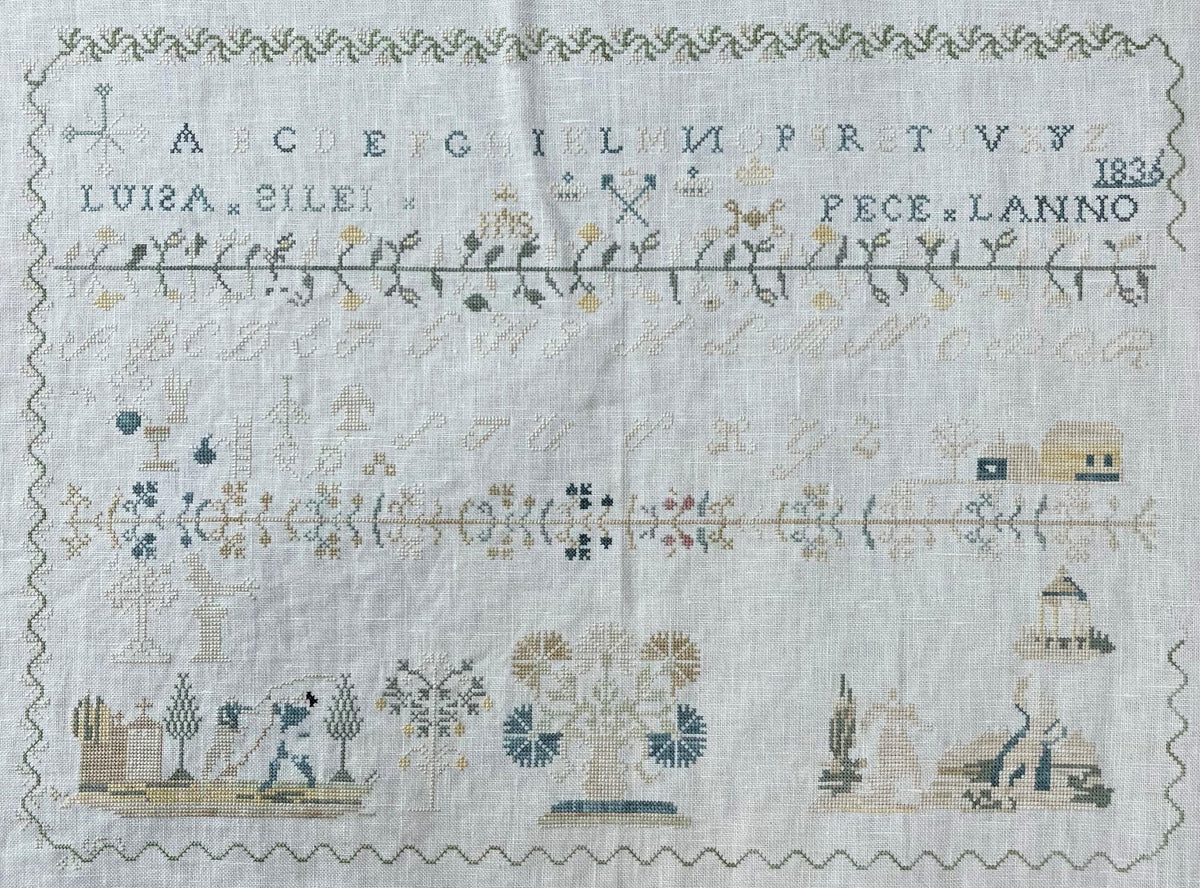 A B C D E F G H I K L M N O P Q R S T U V X Y Z
1836
LUISA x SILEI x IHS PECE x LANNO
A B C D E F G H I K L M N O P Q R
S T U V X Y Z